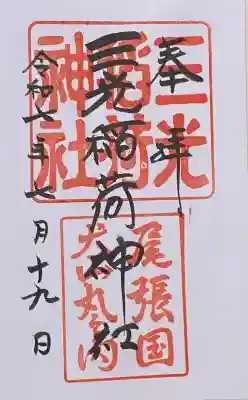 奉拝
三光稲荷神社
令和六年七月十九日
三光
稲荷
神社
尾張国
犬山丸之内